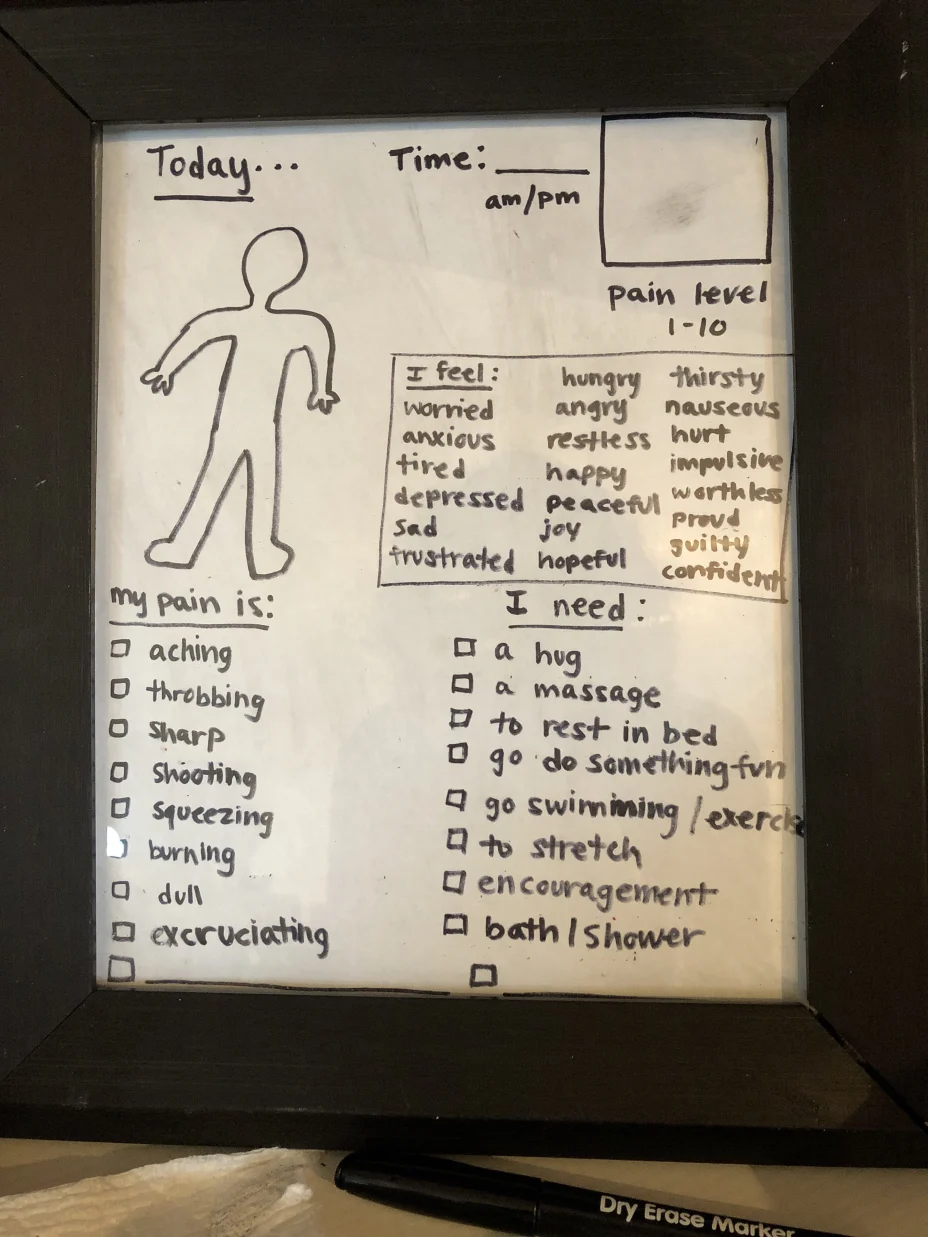 Today...
Time: ____
am/pm
pain level
1-10
I feel:
worried
anxious
tired
depressed
sad
frustrated
hungry
angry
restless
happy
peaceful
joy
hopeful
thirsty
nauseous
hurt
impulsive
worthless
proud
guilty
confident
my pain is:
aching
throbbing
sharp
shooting
squeezing
burning
dull
excruciating
I need:
a hug
a massage
to rest in bed
go do something fun
go swimming /
to stretch
encouragement
bath / shower
Dry Erase Marker